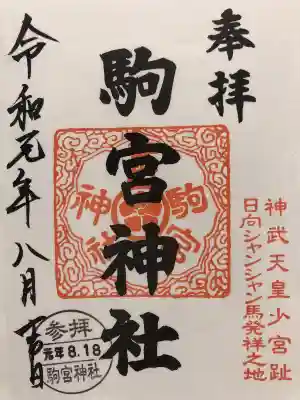 奉拝
駒宮神社
令和元年八月十八日
神武天皇少宮趾
日向シャンシャン馬発祥之地
駒宮神社
参拝
元年8.18
駒宮神社